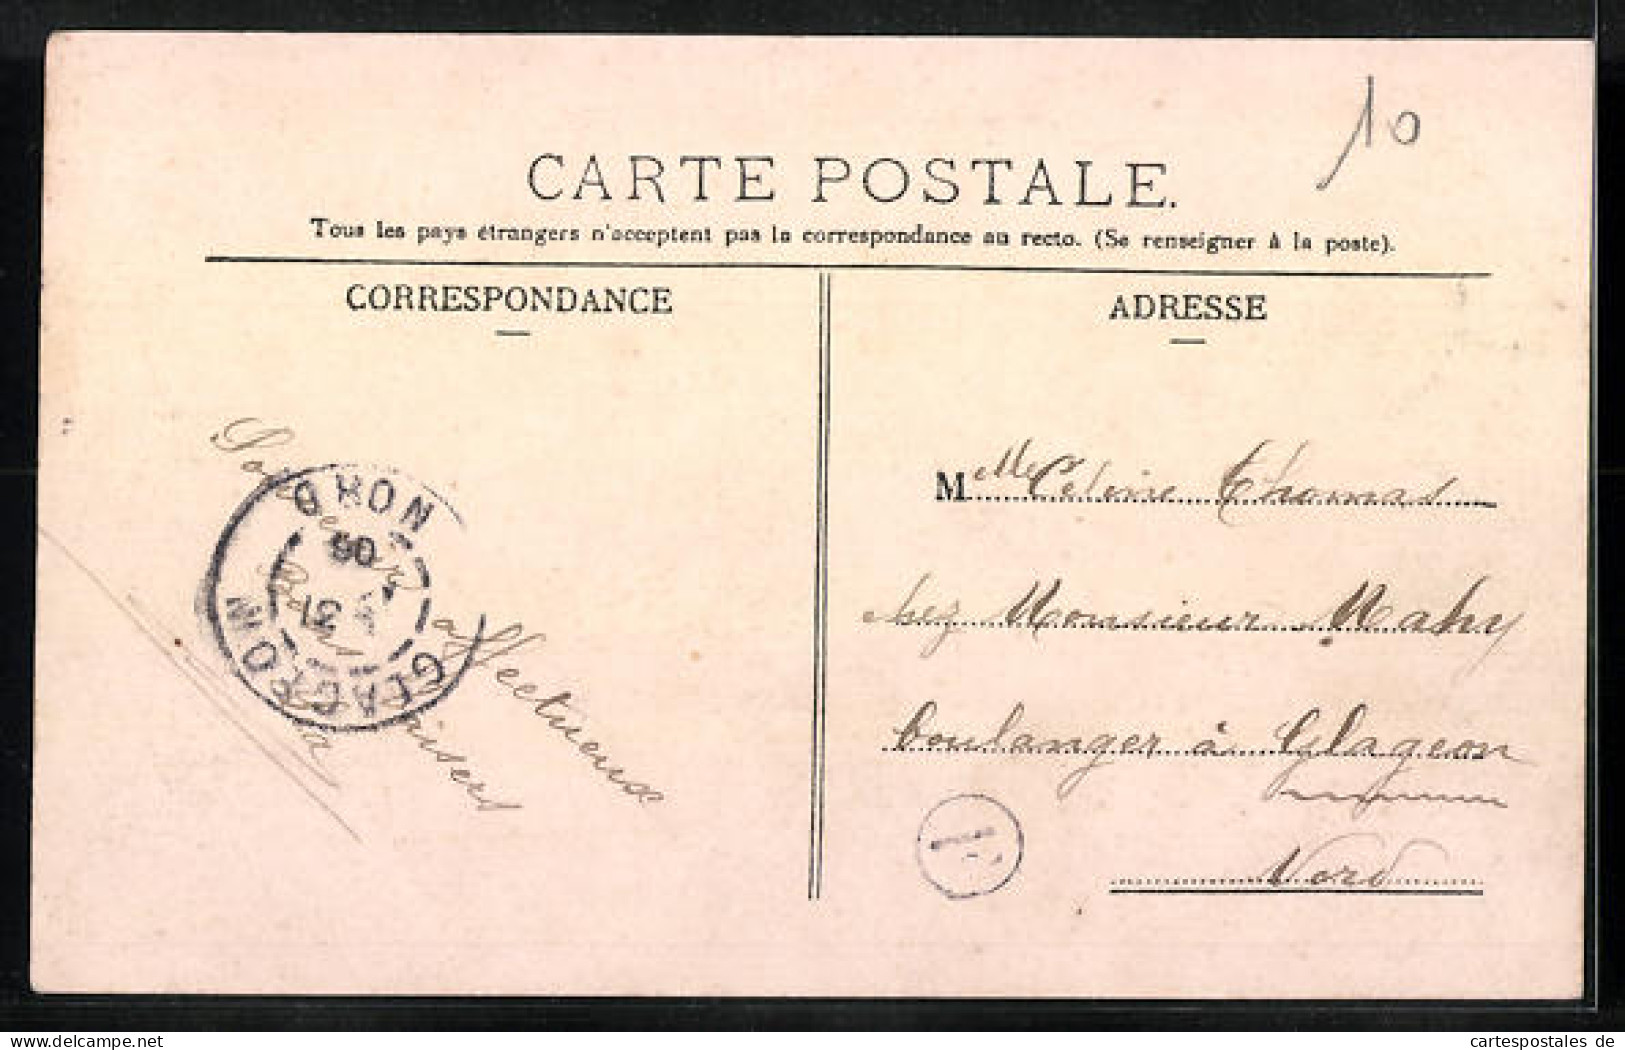 10
CARTE POSTALE.
Tous les pays étrangers n'acceptent pas la correspondance au recto. (Se renseigner à la poste).
CORRESPONDANCE
ADRESSE
Mlle Céline Thomas
chez Monsieur Mahy
boulanger à Glageon
Nord
affectueux
Baisers
GLAGEON
NORD
31
cartespostales de